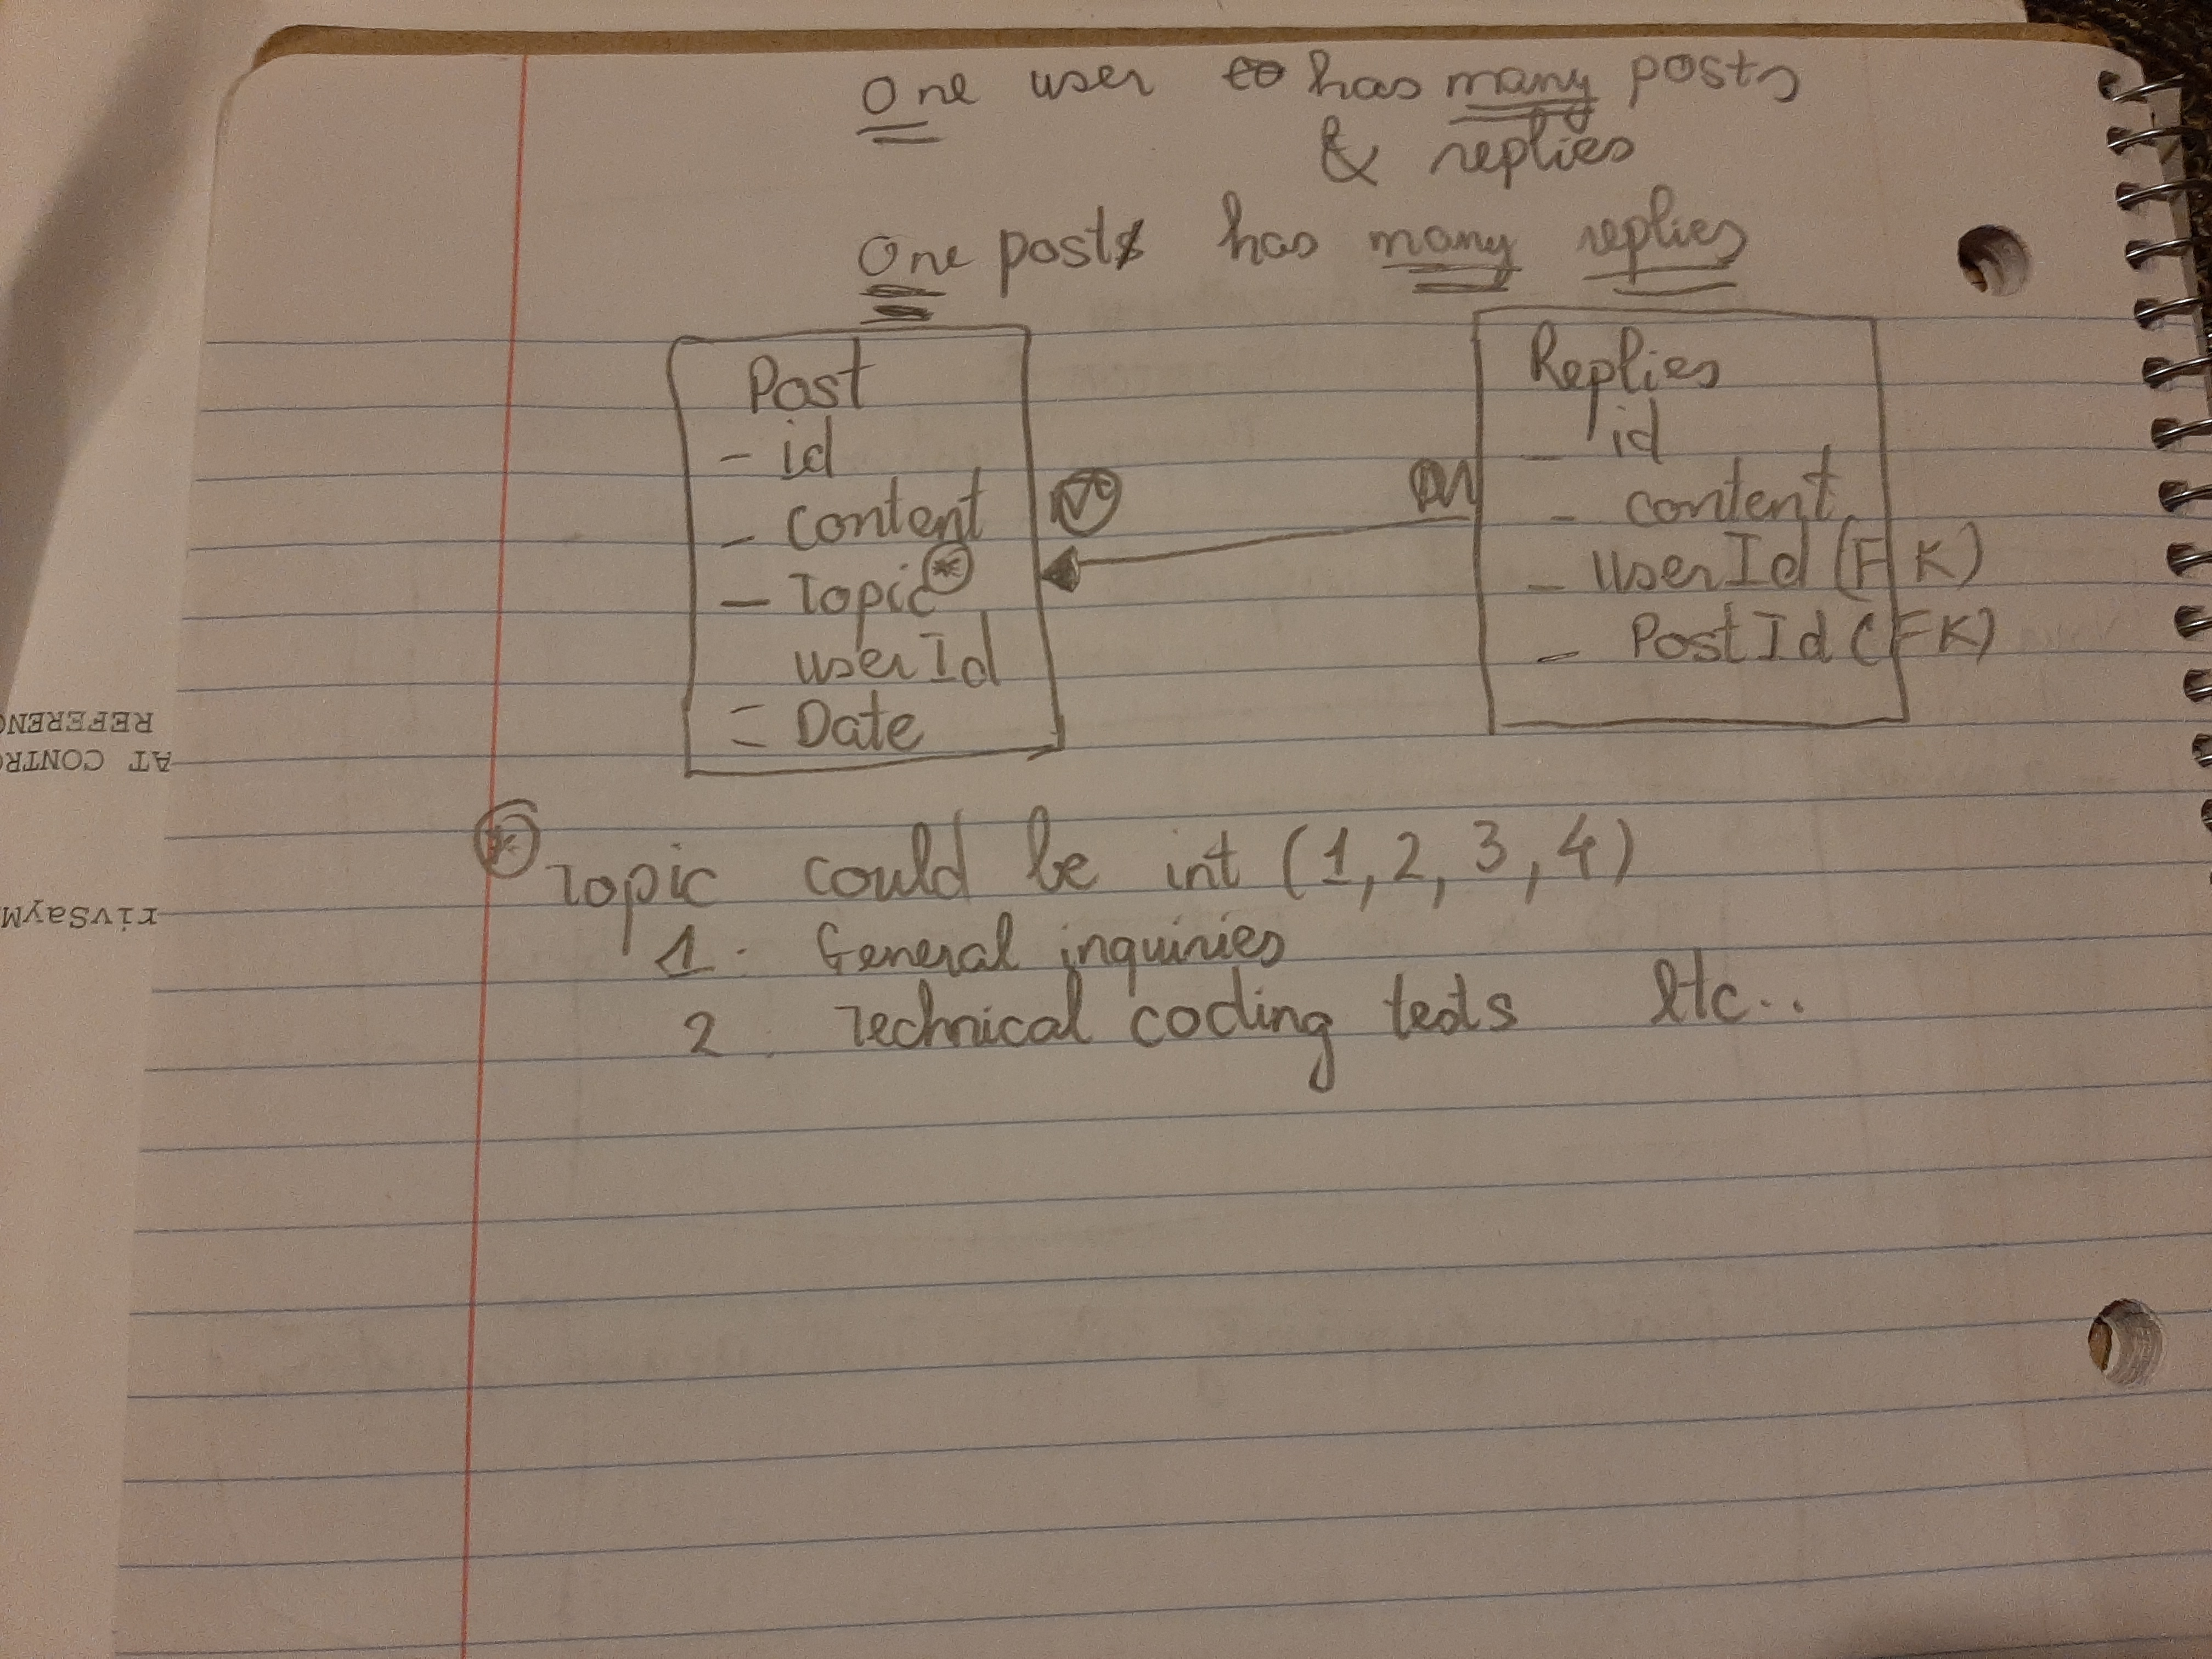 One user has many posts
& replies
One post has many replies
Post
- id
- content
- Topic *
userId
= Date
Replies
- id
- content
- userId (FK)
- PostId (FK)
* Topic could be int (1, 2, 3, 4)
1. General inquiries
2. Technical coding tests etc..
REFEREN
AT CONTR
rivSayM